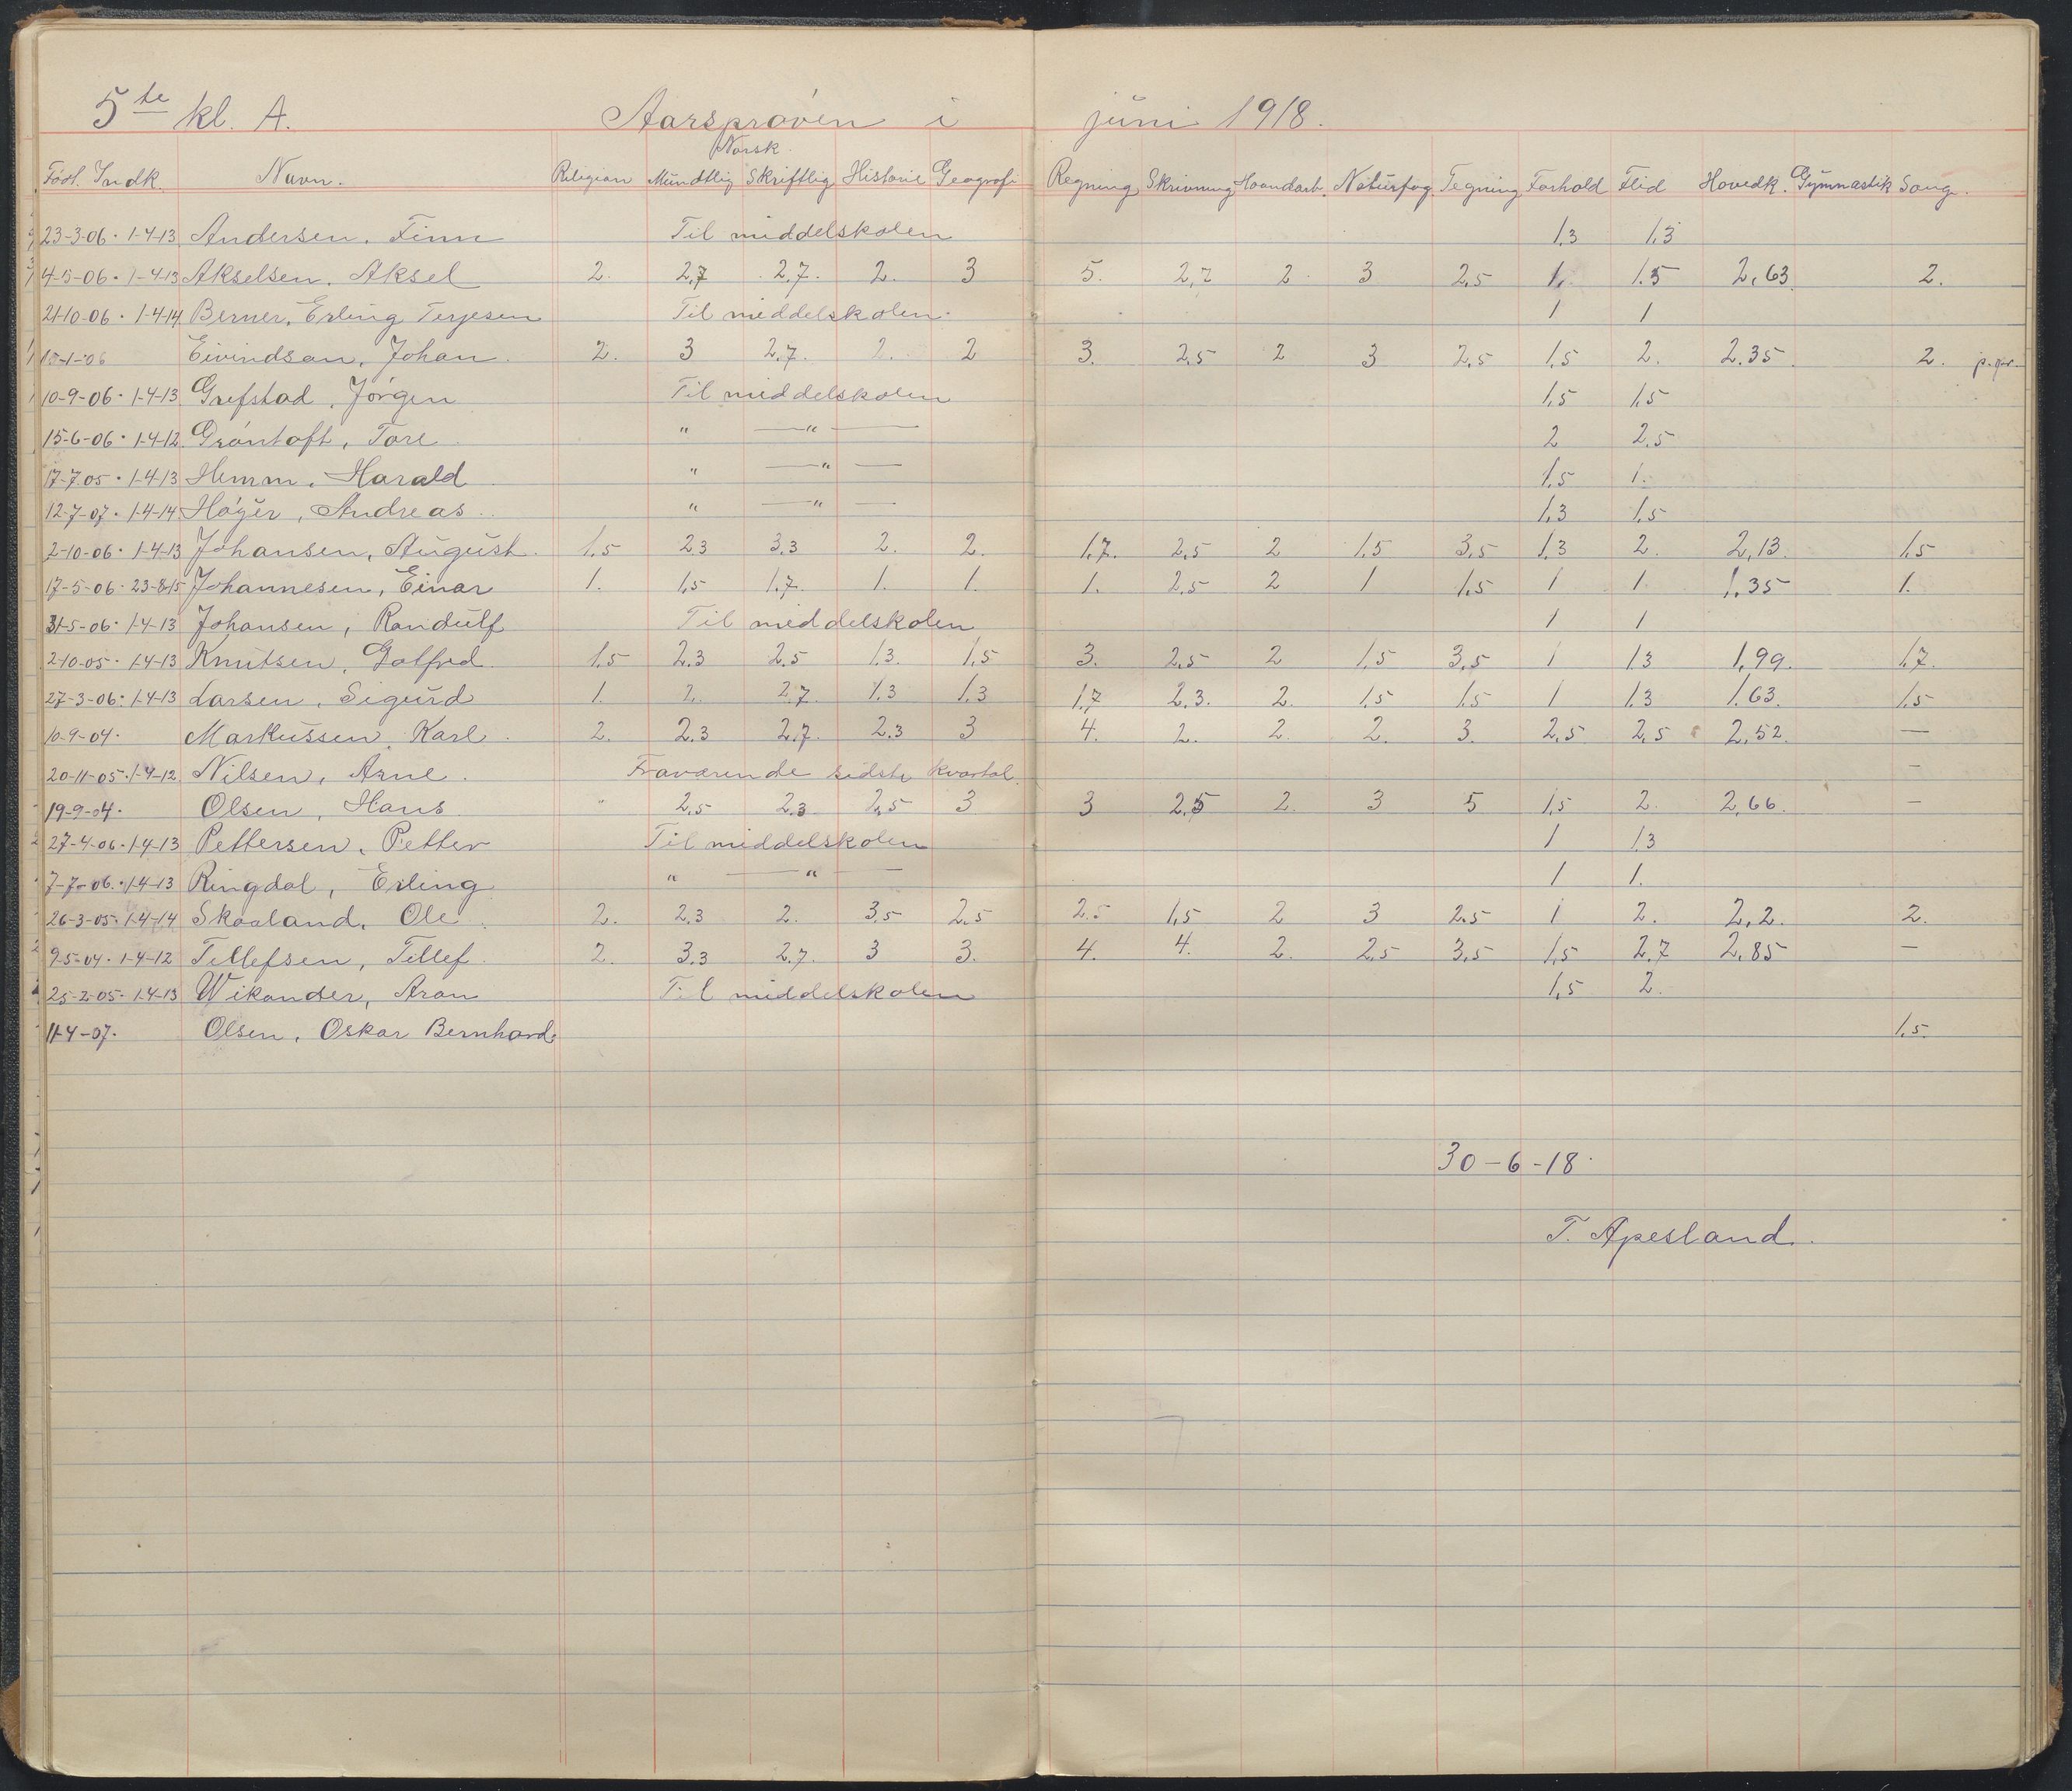 5te kl. A. Aarsprøven i juni 1918.
Norsk
Født. Indk. Navn. Religion Mundtlig Skriftlig Historie Geografi Regning Skrivning Haandarb. Naturfag. Tegning Forhold Flid Hovedk. Gymnastik Sang.
23-3-06. 1-4-13 Andersen, Finn Til middelskolen 1,3 1,3
4-5-06. 1-4-13 Akselsen, Aksel 2. 2,7 2,7. 2. 3 5. 2,2 2 3 2,5 1. 1.5 2,63 2.
21-10-06. 1-4-14 Berner, Erling Terjesen Til middelskolen. 1 1
Eivindsen, Johan. 2. 3 2,7. 2. 2 3. 2,5 2 3 2,5 1,5 2. 2.35 2.
10-9-06. 1-4-13 Grefstad, Jørgen Til middelskolen 1,5 1,5
15-6-06. 1-4-12. Grøntoft, Tore " —"— 2 2,5
17-7-05. 1-4-13 Hemm, Harald " —"— 1,5 1.
12-7-07. 1-4-14 Høyer, Andreas " —"— 1,3 1,5
2-10-06. 1-4-13 Johansen, August. 1,5 2,3 3,3 2. 2. 1,7. 2,5 2 1,5 3,5 1,3 2. 2,13. 1,5
17-5-06. 23-8-15 Johannesen, Einar 1. 1,5 1,7. 1. 1. 1. 2,5 2 1 1,5 1 1. 1,35 1.
31-5-06. 1-4-13 Johansen, Randulf Til middelskolen 1 1
2-10-05. 1-4-13 Knutsen, Gotfred. 1,5 2,3 2,5 1,3. 1,5 3. 2,5 2 1,5 3,5 1 1,3 1,99. 1,7.
27-3-06. 1-4-13 Larsen, Sigurd 1. 2. 2,7. 1,3 1,3 1,7 2,3. 2. 1,5 1,5 1 1,3 1.63. 1,5
10-9-04. Markussen, Karl. 2. 2.3 2,7. 2,3 3 4. 2. 2. 2. 3. 2,5 2,5 2,52. —
20-11-05. 1-4-12. Nilsen, Arne. Fraværende sidste kvartal. —
19-9-04. Olsen, Hans " 2,5 2,3 2,5 3 3 2,5 2. 3 5 1,5 2. 2,66. —
27-4-06. 1-4-13 Pettersen, Petter Til middelskolen 1 1,3
7-7-06. 1-4-13 Ringdal, Erling " —"— 1 1.
26-3-05. 1-4-14 Skaaland, Ole. 2. 2.3 2. 3,5 2,5 2.5 1,5 2 3 2.5 1 2. 2,2. 2.
9-5-04. 1-4-12 Tellefsen, Tellef. 2. 3,3 2,7. 3 3. 4. 4. 2. 2,5 3,5 1,5 2,7 2,85 —
25-2-05. 1-4-13 Wikander, Aron Til middelskolen 1,5 2.
11-4-07. Olsen, Oskar Bernhard. 1,5.
30-6-18.
T. Apesland.